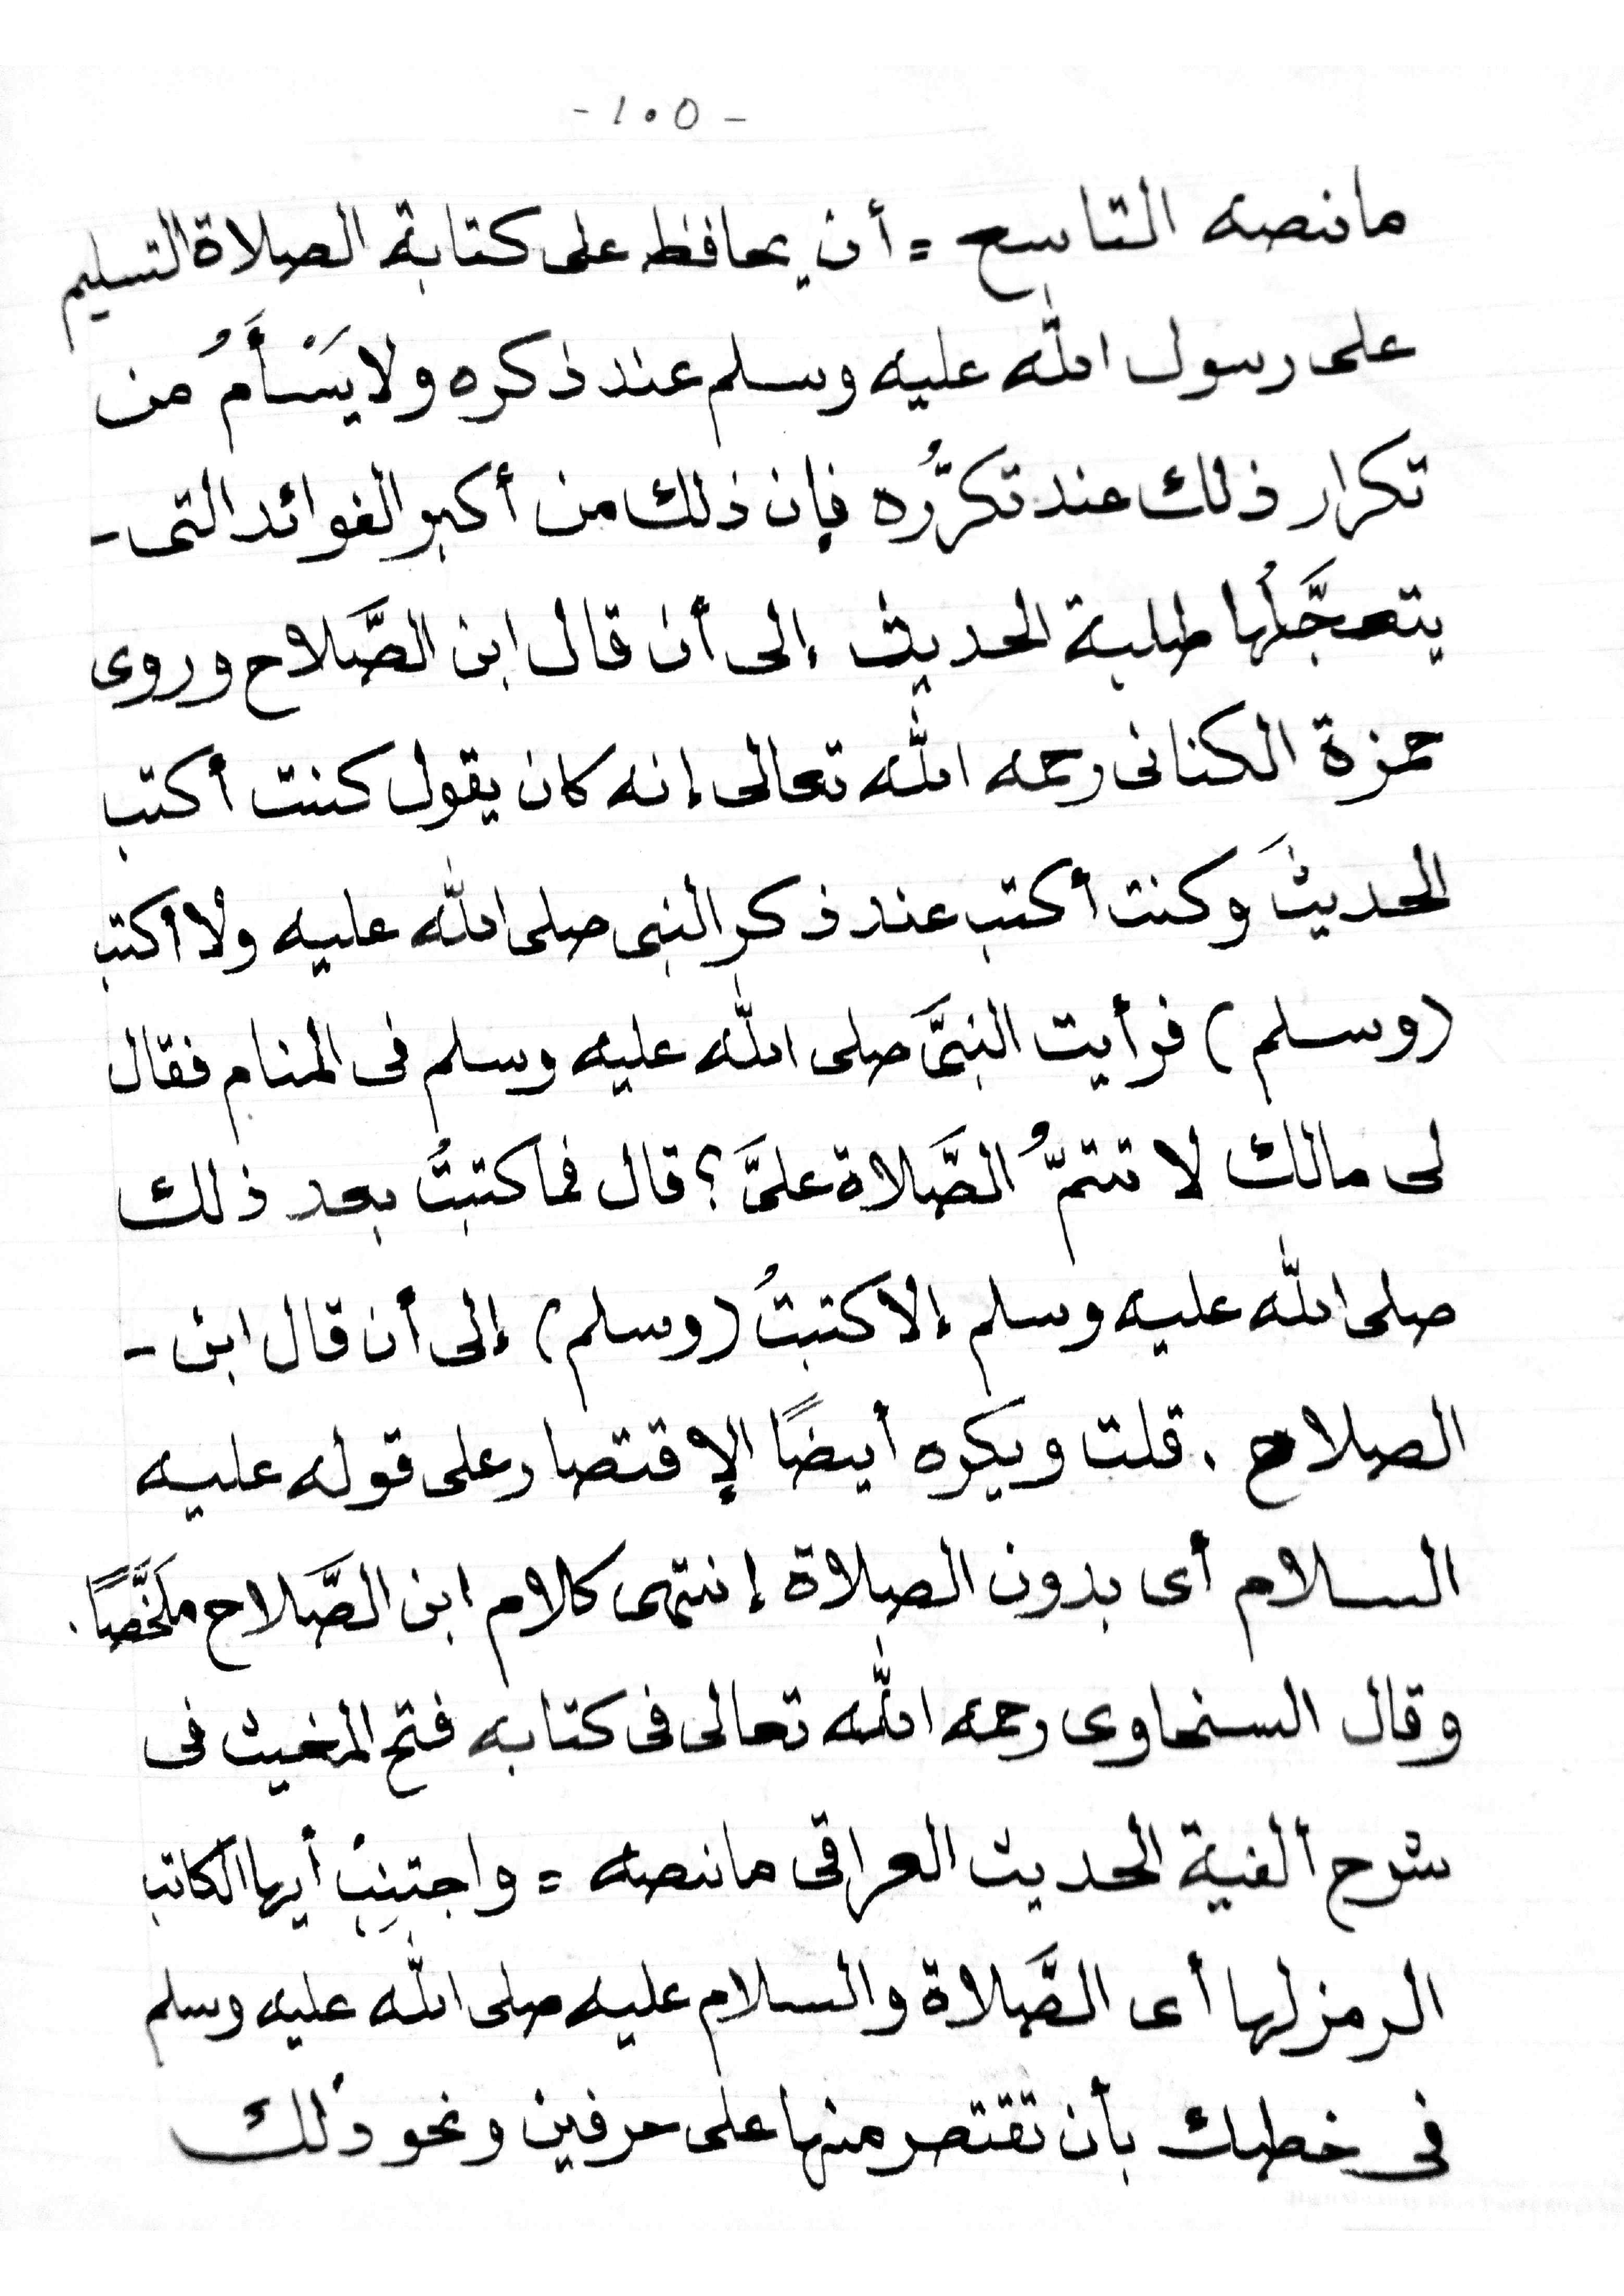 - ١٠٥ -
مانصه التاسع = أن يحافظ على كتابة الصلاة التسليم
على رسول الله عليه وسلم عند ذكره ولا يَسْأَمُ من
تكرار ذلك عند تكرُّره فإن ذلك من أكبر الفوائد التى -
يتعجَّلُها طلبة الحديث إلى أن قال ابن الصَّلاح وروى
حمزة الكنانى رحمه الله تعالى إنه كان يقول كنت أكتب
الحديثَ وكنت أكتب عند ذكر النبى صلى الله عليه ولا أكتب
(وسلم) فرأيت النبىَّ صلى الله عليه وسلم فى المنام فقال
لى مالك لا تتمُّ الصَّلاة علىَّ؟ قال فما كتبتُ بعد ذلك
صلى الله عليه وسلم إلا كتبتُ (وسلم) إلى أن قال ابن -
الصلاح . قلت ويكره أيضًا الإقتصار على قوله عليه
السلام أى بدون الصلاة إنتهى كلام ابن الصَّلاح ملخَّصًا.
وقال السخاوى رحمه الله تعالى فى كتابه فتح المغيث فى
شرح ألفية الحديث العراقى مانصه = واجتنِبْ أيها الكاتب
الرمز لها أى الصَّلاة والسلام عليه صلى الله عليه وسلم
فى خطك بأن تقتصر منها على حرفين ونحو ذلك